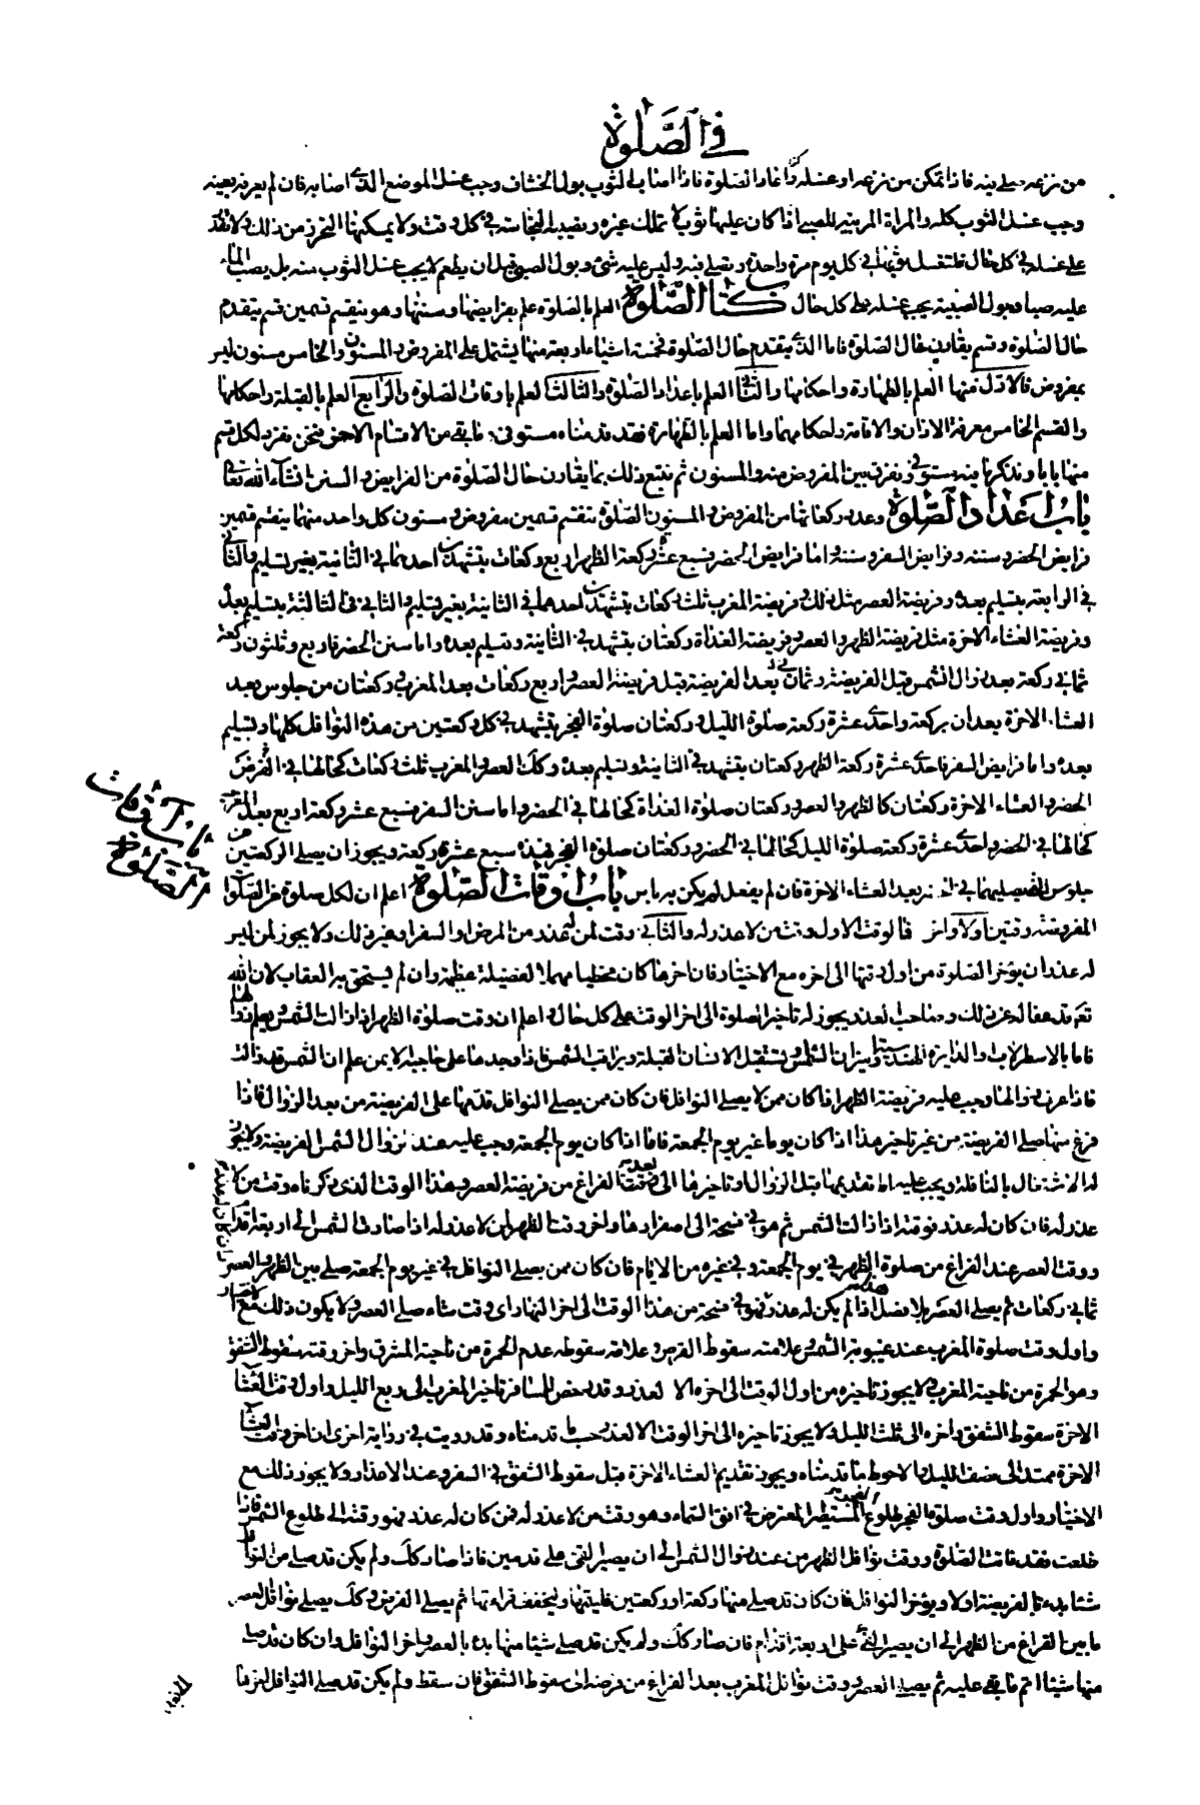 في الصلوة
من نزعه صلى فيه فاذا تمكن من نزعه او غسله نزعه واعاد الصلوة فاذا اصاب الثوب بول الخشاف وجب غسل الموضع الذى اصابه فان لم يعرفه بعينه
وجب غسل الثوب كله والمراة المربية للصبى اذا كان عليها ثوب لا تملك غيره وتصيبه النجاسة في كل وقت ولا يمكنها التحرز من ذلك ولا تقدر
على غسله في كل حال فلتغسل ثوبها في كل يوم مرة واحدة وتصلى فيه وليس عليه شئ وبول الصبى قبل ان يطعم لا يجب غسل الثوب منه بل يصب الماء
عليه صبا وبول الصبية يجب غسله على كل حال كتاب الصلوة العلم بالصلوة علم بفرايضها وسننها وهو ينقسم قسمين قسم يتقدم
حال الصلوة وقسم يقارن حال الصلوة فاما الذى يتقدم حال الصلوة فخمسة اشياء اربعة منها يشتمل على المفروض والمسنون والخامس مسنون ليس
بمفروض فالاول منها العلم بالطهارة واحكامها والثانى العلم باعداد الصلوة والثالث العلم باوقات الصلوة والرابع العلم بالقبلة واحكامها
والقسم الخامس معرفة الاذان والاقامة واحكامهما واما العلم بالطهارة فقد قدمناه مستوفى وما بقى من الاقسام الاخر فنحن نفرد لكل قسم
منها بابا ونذكر ما فيه مستوفى ونفرق بين المفروض منه والمسنون ثم نتبع ذلك بما يقارن حال الصلوة من الفرايض والسنن انشاء الله تعالى
باب اعداد الصلوة وعدد ركعاتها من المفروض والمسنون الصلوة تنقسم قسمين مفروض ومسنون كل واحد منهما ينقسم قسمين
فرايض الحضر وسننه وفرايض السفر وسننه واما فرايض الحضر فسبع عشرة ركعة الظهر اربع ركعات بتشهدين احدهما في الثانية بغير تسليم والثانى
في الرابعة بتسليم بعده وفريضة العصر مثل ذلك وفريضة المغرب ثلث ركعات بتشهدين احدهما في الثانية بغير تسليم والثانى في الثالثة بتسليم بعده
وفريضة العشاء الاخرة مثل فريضة الظهر والعصر وفريضة الغداة ركعتان بتشهد في الثانية وتسليم بعده واما سنن الحضر فاربع وثلثون ركعة
ثمانى ركعة بعد زوال الشمس قبل الفريضة وثمان بعد الفريضة قبل فريضة العصر واربع ركعات بعد المغرب وركعتان من جلوس بعد
العشاء الاخرة يعدان بركعة واحدى عشرة ركعة صلوة الليل وركعتان صلوة الفجر يتشهد في كل ركعتين من هذه النوافل كلها ويسلم
بعده واما فرايض السفر فاحدى عشرة ركعة الظهر ركعتان بتشهد في الثانية وتسليم بعده وكك العصر والمغرب ثلث ركعات كحالها في الفرض
الحضر والعشاء الاخرة ركعتان كالظهر والعصر وركعتان صلوة الغداة كحالها في الحضر واما سنن السفر فسبع عشر ركعة اربع بعد المغرب
كحالها في الحضر واحدى عشرة ركعة صلوة الليل كحالها في الحضر وركعتان صلوة الفجر فهذه سبع عشرة ركعة ويجوز ان يصلى الركعتين من
جلوس التى يصليهما في الحضر بعد العشاء الاخرة فان لم يفعل لم يكن به باس باب اوقات الصلوة اعلم ان لكل صلوة من الصلوات
باب اوقات
الصلوة
المفروضة وقتين اولا واخر فالوقت الاول وقت من لا عذر له والثانى وقت لمن له عذر من المرض او السفر او غير ذلك ولا يجوز لمن ليس
له عذر ان يؤخر الصلوة من اول وقتها الى اخره مع الاختيار فان اخرها كان مخطيا مهملا لفضيلة عظيمة وان لم يستحق به العقاب لان الله
تعالى قد عفا له عن ذلك وصاحب العذر يجوز له تاخير الصلوة الى اخر الوقت على كل حال واعلم ان وقت صلوة الظهر اذا زالت الشمس ويعلم زوالها
فاما بالاسطرلاب والدايرة الهندسية وميزان الشمس او يستقبل الانسان القبلة ويراقب الشمس فاذا وجدها على حاجبه الايمن علم ان الشمس قد زالت
فاذا عرف زوالها وجب عليه فريضة الظهر اذا كان ممن لا يصلى النوافل فان كان ممن يصلى النوافل قدمها على الفريضة من بعد الزوال فاذا
فرغ منها صلى الفريضة من غير تاخير هذا اذا كان يوما غير يوم الجمعة فاما اذا كان يوم الجمعة وجب عليه عند زوال الشمس الفريضة ولا يجوز
له الاشتغال بالنافلة ويجب عليه اما تقديمها قبل الزوال او تاخيرها الى بعد الفراغ من فريضة العصر وهذا الوقت الذى ذكرناه وقت من لا
عذر له فان كان له عذر فوقته اذا زالت الشمس ثم هو في فسحة الى اصفرارها واخر وقت الظهر لمن لا عذر له اذا صارت الشمس الى اربعة اقدام
ووقت العصر عند الفراغ من صلوة الظهر في يوم الجمعة وفي غيره من الايام فان كان ممن يصلى النوافل في غير يوم الجمعة صلى بين الظهر والعصر
ثمانى ركعات ثم يصلى العصر بلا فصل اذا لم يكن له عذر فهو في فسحة من هذا الوقت الى اخر النهار اى وقت شاء صلى العصر ولا يكون ذلك مع الاختيار
واول وقت صلوة المغرب عند غيبوبة الشمس وعلامته سقوط القرص وعلامة سقوطه عدم الحمرة من ناحية المشرق واخر وقته سقوط الشفق
وهو الحمرة من ناحية المغرب ولا يجوز تاخيره من اول الوقت الى اخره الا لعذر وقد رخص للمسافر تاخير المغرب الى ربع الليل واول وقت العشاء
الاخرة سقوط الشفق واخره الى ثلث الليل ولا يجوز تاخيره الى اخر الوقت الا لعذر حسب ما قدمناه وقد رويت في رواية اخرى ان اخر وقت العشاء
الاخرة ممتد الى نصف الليل والاحوط ما قدمناه ويجوز تقديم العشاء الاخرة قبل سقوط الشفق في السفر وعند الاعذار ولا يجوز ذلك مع
الاختيار واول وقت صلوة الفجر طلوع الفجر المستطير المعترض في افق السماء وهو وقت من لا عذر له فمن كان له عذر فهو وقته الى طلوع الشمس فاذا
طلعت فقد فاتت الصلوة ووقت نوافل الظهر من عند زوال الشمس الى ان يصير الفئ على قدمين فاذا صار كك ولم يكن قد صلى من النوافل
شئا بدء بالفريضة اولا ويؤخر النوافل فان كان قد صلى منها ركعة او ركعتين فليتمها وليخفف قراءتها ثم يصلى الفرض وكك يصلى نوافل العصر
ما بين الفراغ من الظهر الى ان يصير الفئ على اربعة اقدام فان صار كك ولم يكن قد صلى شيئا منها بدء بالعصر واخر النوافل وان كان قد صلى
منها شيئا اتم ما بقى عليه ثم يصلى العصر ووقت نوافل المغرب بعد الفراغ من فرضه الى سقوط الشفق فان سقط ولم يكن قد صلى النوافل اخرها